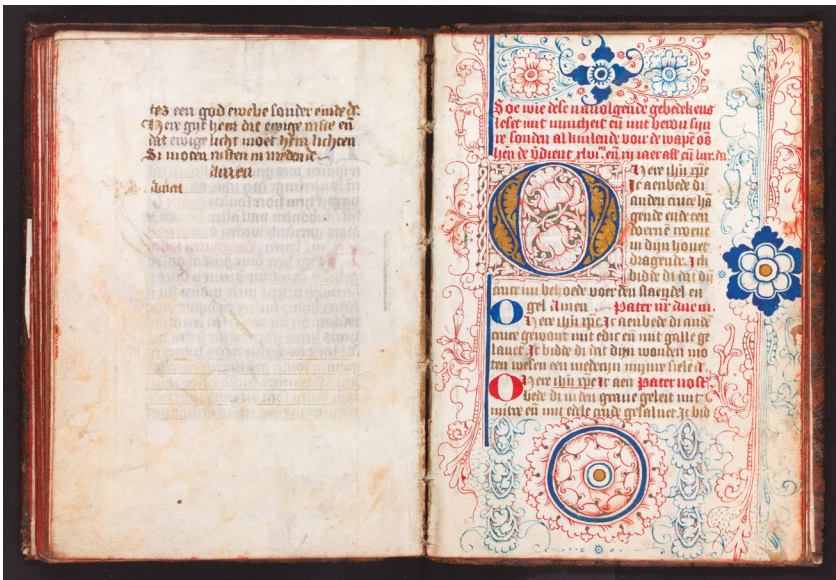 tes een god ewebe sonder einde &.
Here gif hem die ewige ruste eñ
dat ewige licht moet hem lichten
Si moten rusten in vreden.
Amen
Amen
Soe wie dese navolgende gebedekens
leset mit ynnicheit eñ mit berou sijn
re sonden al knilende voir de wapē ōs
hēn de v̄dient xlvi. eñ
Here ihū xp̄e
Ic aenbede di
anden cruce hā
gende ende een
doernē croene
in dijn hovet
dragende. Ick
bidde di dat dij
cruce mi behoede voer den slaenden en
gel Amen. Pater nr̄ aue m.
O Here ihū xp̄e. Ic aenbede di andē
cruce gewont mit edic eñ mit galle ge
lauet. Ic bidde di dat dijn wonden mo
ten wesen een medecijn mijnre siele a
O Here ihū xp̄e Ic aen Pater nost̄
bede di in den graue geleit mit
mirre eñ mit edele crude gesaluet. Ic bid